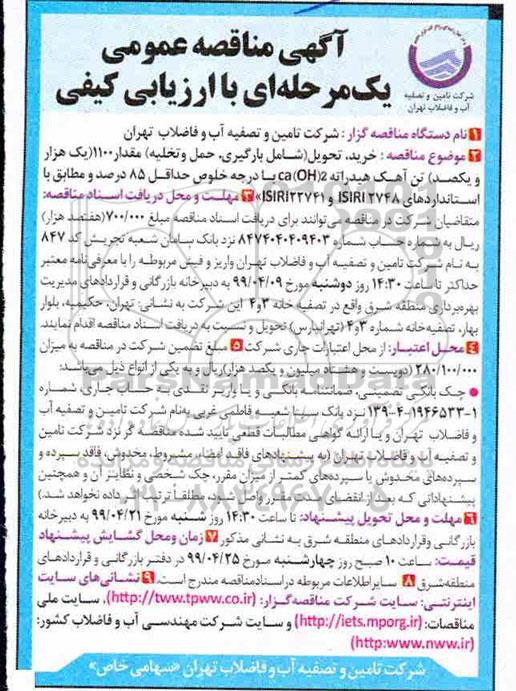 آگهی مناقصه عمومی
یک‌مرحله‌ای با ارزیابی کیفی
شرکت تامین و تصفیه
آب و فاضلاب تهران
1 نام دستگاه مناقصه گزار: شرکت تامین و تصفیه آب و فاضلاب تهران
2 موضوع مناقصه: خرید، تحویل(شامل بارگیری، حمل وتخلیه) مقدار۱۱۰۰(یک هزار
و یکصد) تن آهک هیدراته ca(OH)2 با درجه خلوص حداقل ۸۵ درصد و مطابق با
استانداردهای ISIRI ۲۷۴۸ و ISIRI۲۲۷۴۱» 3 مهلت و محل دریافت اسناد مناقصه:
متقاضیان شرکت در مناقصه می‌توانند برای دریافت اسناد مناقصه مبلغ ۷۰۰/۰۰۰ (هفتصد هزار)
ریال به شماره حساب شماره ۸۴۷۴۰۴۰۴۰۹۴۰۳ نزد بانک سامان شعبه تجریش کد ۸۴۷
به نام شرکت تامین و تصفیه آب و فاضلاب تهران واریز و فیش مربوطه را با معرفی‌نامه معتبر
حداکثر تا ساعت ۱۴:۳۰ روز دوشنبه مورخ ۹۹/۰۴/۰۹ به دبیرخانه بازرگانی و قراردادهای مدیریت
بهره‌برداری منطقه شرق واقع در تصفیه خانه ۳و۴ این شرکت به نشانی: تهران، حکیمیه، بلوار
بهار، تصفیه‌خانه شماره ۳و۴ (تهرانپارس) تحویل و نسبت به دریافت اسناد مناقصه اقدام نمایند.
4 محل اعتبار: از محل اعتبارات جاری شرکت 5 مبلغ تضمین شرکت در مناقصه به میزان
۲۸۰/۱۰۰/۰۰۰ (دویست و هشتاد میلیون و یکصد هزار)ریال و به یکی از انواع ذیل می‌باشد:
● چک بانکی تضمینی، ضمانتنامه بانکی و یا واریز نقدی به حساب جاری، شماره
۱-۱۹۴۶۵۳۳-۴-۱۳۹ نزد بانک سینا شعبه فاطمی غربی به‌نام شرکت تامین و تصفیه آب
و فاضلاب تهران و یا ارائه گواهی مطالبات قطعی تایید شده مناقصه گر نزد شرکت تامین
و تصفیه آب و فاضلاب تهران (به پیشنهادهای فاقد امضاء، مشروط، مخدوش، فاقد سپرده و
سپرده‌های مخدوش یا سپرده‌های کمتر از میزان مقرر، چک شخصی و نظایر آن و همچنین
پیشنهاداتی که بعد از انقضای مدت مقرر واصل شود، مطلقاً ترتیب اثر داده نخواهد شد.)
6 مهلت و محل تحویل پیشنهاد: تا ساعت ۱۴:۳۰ روز شنبه مورخ ۹۹/۰۴/۲۱ به دبیرخانه
بازرگانی وقراردادهای منطقه شرق به نشانی مذکور 7 زمان ومحل گشایش پیشنهاد
قیمت: ساعت ۱۰ صبح روز چهارشنبه مورخ ۹۹/۰۴/۲۵ در دفتر بازرگانی و قراردادهای
منطقه‌شرق 8 سایراطلاعات مربوطه دراسنادمناقصه مندرج است. 9 نشانی‌های سایت
اینترنتی: سایت شرکت مناقصه‌گزار: (http://tww.tpww.co.ir)، سایت ملی
مناقصات: (http://iets.mporg.ir) و سایت شرکت مهندسی آب و فاضلاب کشور:
(http:www.nww.ir)
شرکت تامین و تصفیه آب و فاضلاب تهران «سهامی خاص»
ParsNamadData